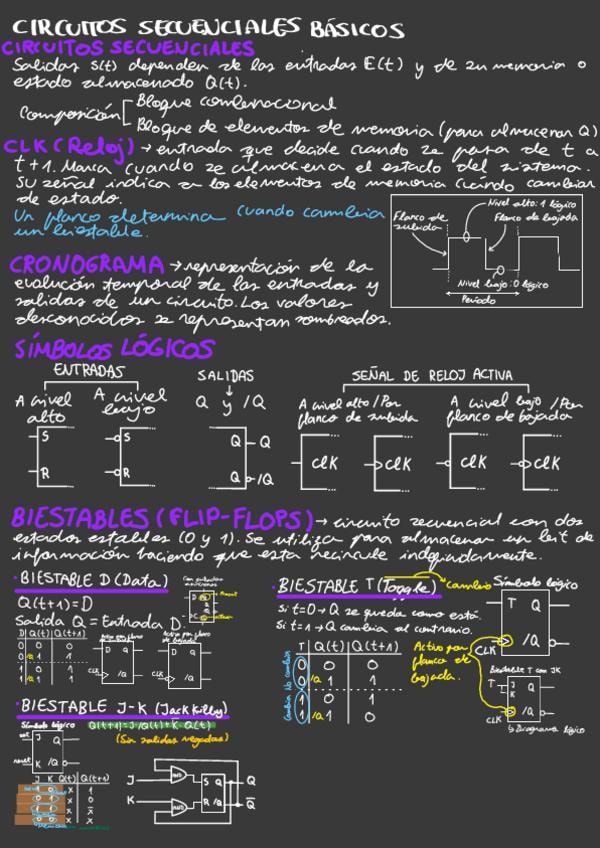 CIRCUITOS SECUENCIALES BÁSICOS
CIRCUITOS SECUENCIALES
Salidas S(t) dependen de las entradas E(t) y de su memoria o
estado almacenado Q(t).
Composición
Bloque combinacional
Bloque de elementos de memoria (para almacenar Q)
CLK (Reloj) → entrada que decide cuando se pasa de t a
t+1. Marca cuando se almacena el estado del sistema.
Su señal indica a los elementos de memoria cuándo cambiar
de estado.
Un flanco determina cuando cambia
un biestable.
Nivel alto: 1 lógico
Flanco de subida
Flanco de bajada
Nivel bajo: 0 lógico
Periodo
CRONOGRAMA → representación de la
evolución temporal de las entradas y
salidas de un circuito. Los valores
desconocidos se representan sombreados.
SÍMBOLOS LÓGICOS
ENTRADAS
A nivel alto
A nivel bajo
S
R
S
R
SALIDAS
Q y /Q
Q Q
Q /Q
SEÑAL DE RELOJ ACTIVA
A nivel alto / Por flanco de subida
A nivel bajo / Por flanco de bajada
CLK
CLK
CLK
CLK
BIESTABLES (FLIP-FLOPS) → circuito secuencial con dos
estados estables (0 y 1). Se utiliza para almacenar un bit de
información haciendo que esta recircule indefinidamente.
· BIESTABLE D (Data)
Q(t+1) = D
Salida Q = Entrada D
D Q(t) Q(t+1)
0 0 0
0 1 0
1 0 1
1 1 1
D Q
CLK /Q
D Q
CLK /Q
· BIESTABLE T (Toggle) → cambio
Si t=0 → Q se queda como está.
Si t=1 → Q cambia al contrario.
T Q(t) Q(t+1)
0 0 0
0 1 1
1 0 1
1 1 0
No cambia
Cambia
Activo por
flanco de
bajada.
Símbolo lógico
T Q
CLK /Q
Biestable T con JK
T J Q
K
CLK /Q
Diagrama lógico
· BIESTABLE J-K (Jack Kilby)
Símbolo lógico
Q(t+1) = J·/Q(t) + K̅·Q(t)
(Sin salidas negadas)
set J Q
reset K /Q
J K Q(t) Q(t+1)
J
K
AND
AND
S Q Q
R /Q Q̅